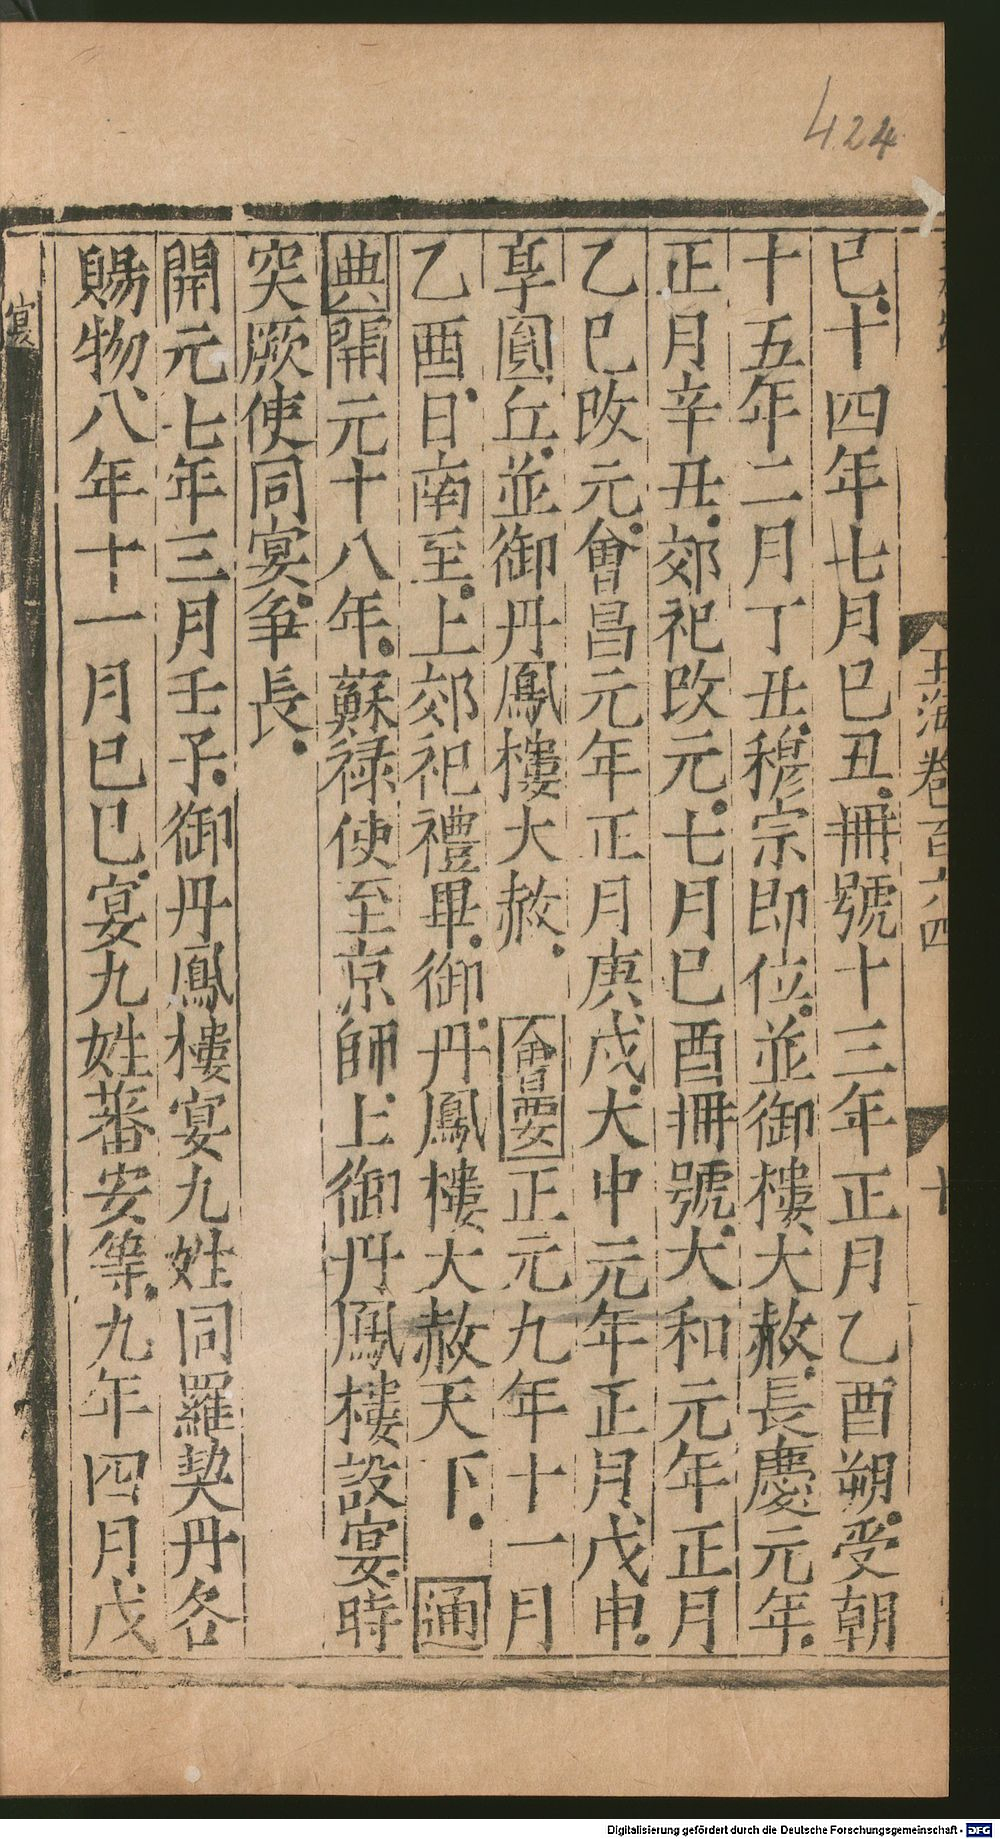 424
玉海卷百六四
十
巳十四年七月巳丑冊號十三年正月乙酉朔受朝
十五年二月丁丑穆宗即位並御樓大赦長慶元年
正月辛丑郊祀改元七月巳酉冊號大和元年正月
乙巳改元會昌元年正月庚戌大中元年正月戊申
享圓丘並御丹鳳樓大赦 會要正元九年十一月
乙酉日南至上郊祀禮畢御丹鳳樓大赦天下 通
典開元十八年蘇祿使至京師上御丹鳳樓設宴時
突厥使同宴爭長
開元七年三月壬子御丹鳳樓宴九姓同羅契丹各
賜物八年十一月巳巳宴九姓蕃安等九年四月戊
宴
Digitalisierung gefördert durch die Deutsche Forschungsgemeinschaft - DFG